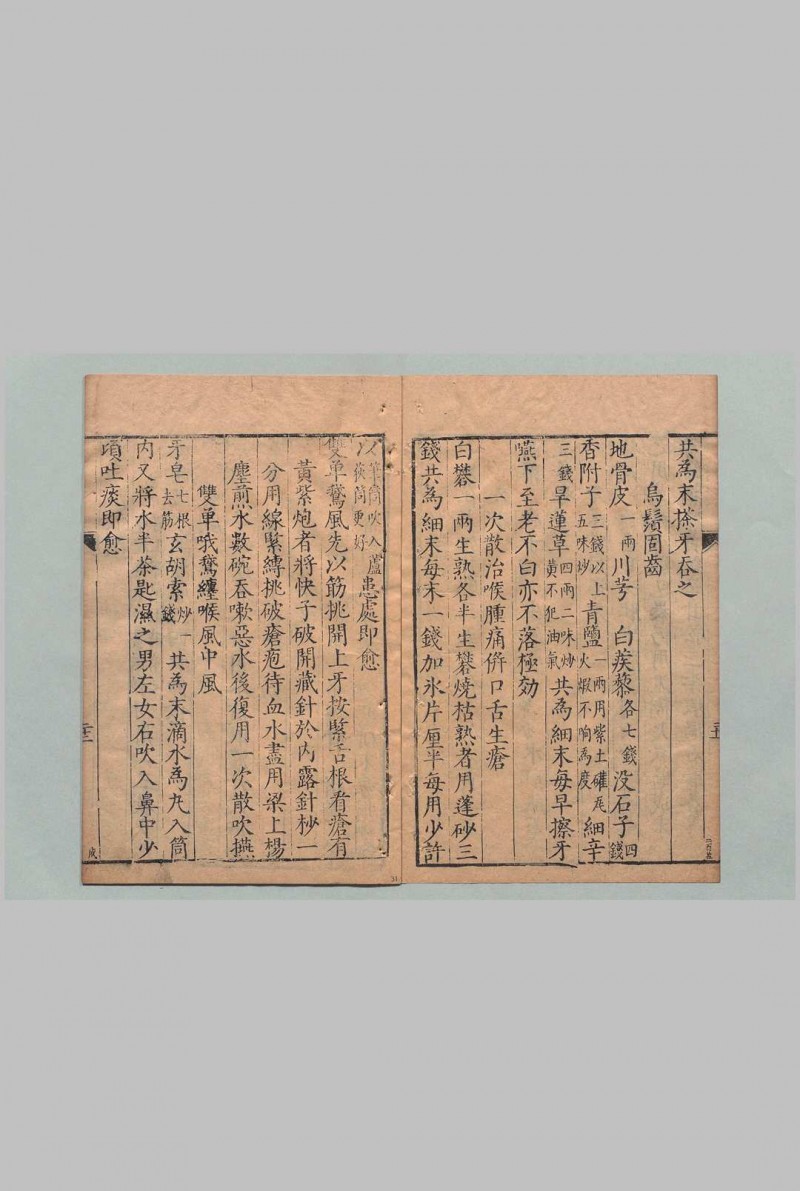 共為末搽牙吞之
烏鬚固齒
地骨皮一兩川芎 白蒺藜各七錢没石子四錢
香附子三錢以上五味炒青鹽一兩用紫土礶瓦火煆不响為度細辛
三錢旱蓮草四兩二味炒黄不犯油氣共為細末每早擦牙
嚥下至老不白亦不落極効
一次散治喉腫痛併口舌生瘡
白礬一兩生熟各半生礬燒枯熟者用蓬砂三
錢共為細末每末一錢加氷片厘半每用少許
以筆筒吹入蘆荻筒更好患處即愈
雙單鵞風先以筋挑開上牙按緊舌根看瘡有
黃紫炮者將快子破開藏針於内露針杪一
分用線緊縛挑破瘡疱待血水盡用梁上楊
塵煎水數碗吞嗽惡水後復用一次散吹搽
雙單哦鵞纏喉風中風
牙皂七根去筋玄胡索炒一錢共為末滴水為丸入筒
内又將水半茶匙濕之男左女右吹入鼻中少
頃吐痰即愈
成